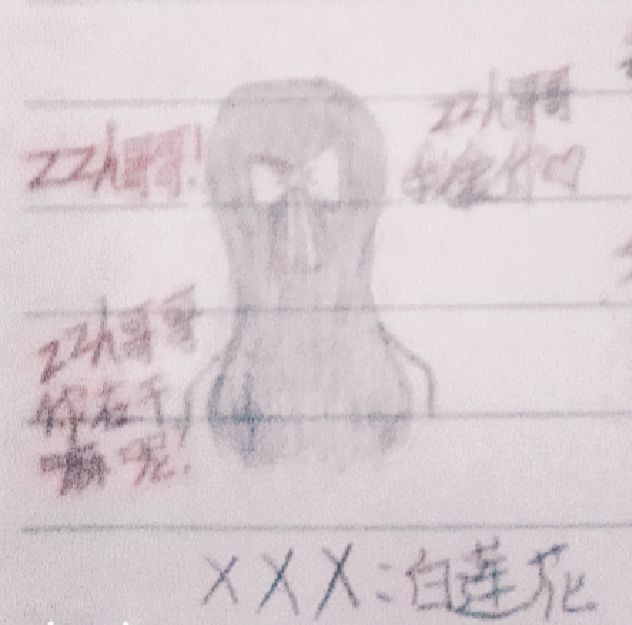 ZZ人哥哥!
ZZ人哥哥
我爱你♡
ZZ人哥哥
你在干
嘛呢!
XXX:白莲花